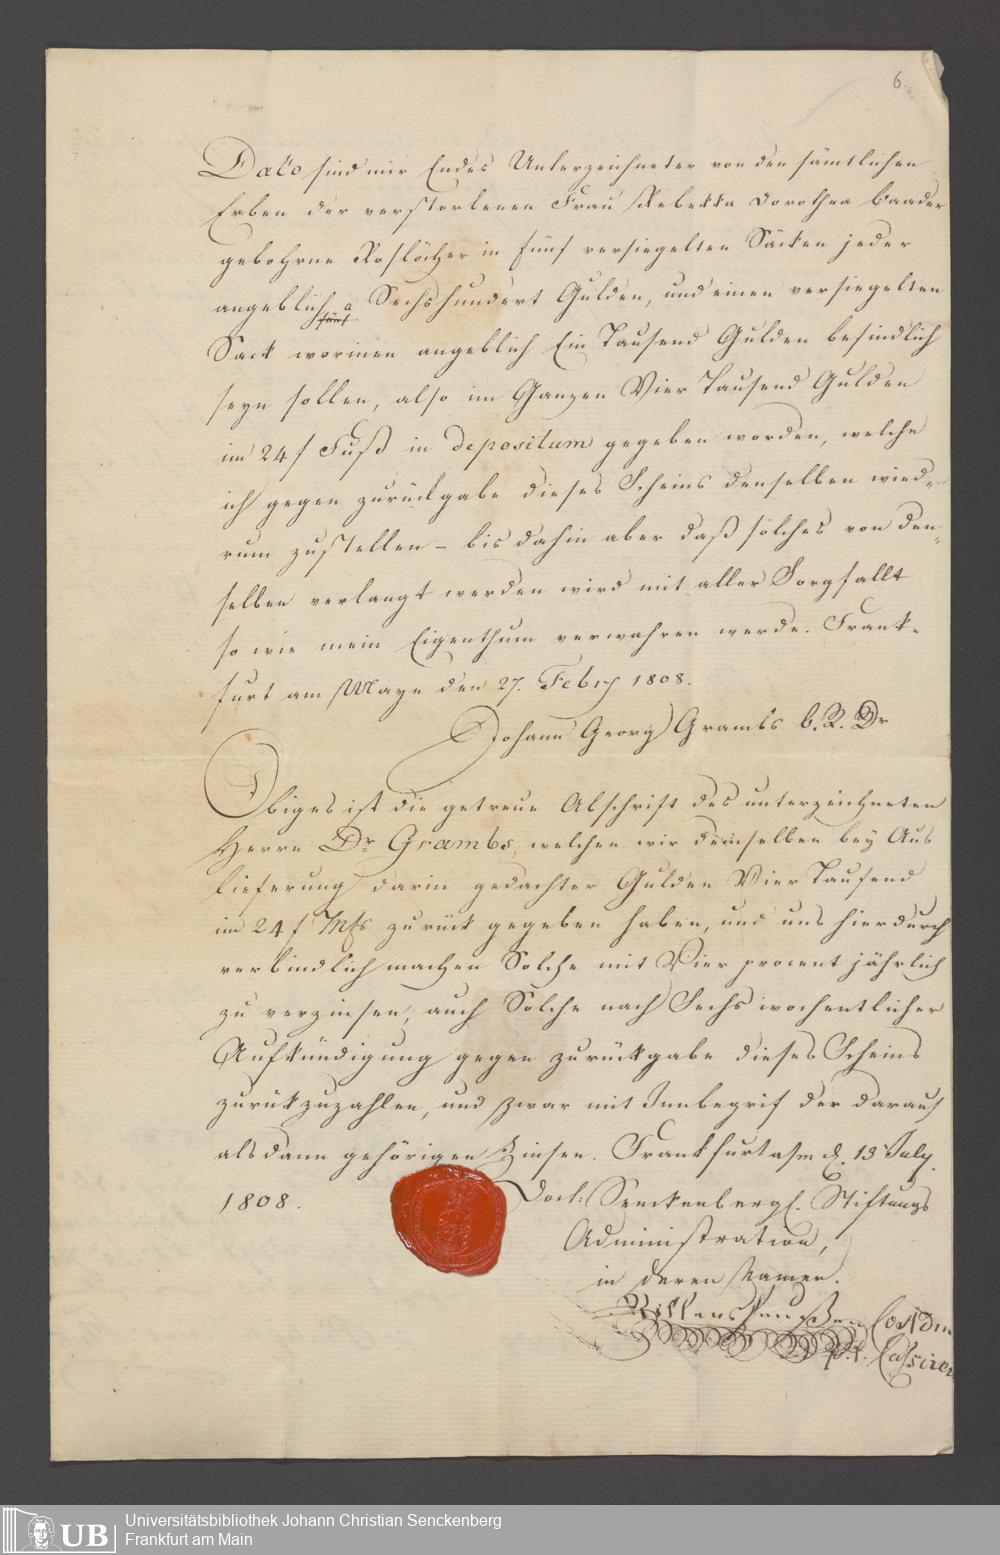 6.
Dato sind mir Endes Unterzeichneter von den sämtlichen
Erben der verstorbenen Frau Rebekka Dorothea Baader
gebohrne Roslöcher in fünf versiegelten Säcken jeder
angeblich a Sechshundert Gulden, und einen versiegelten
fünf
Sack worinen angeblich Ein Tausend Gulden befindlich
seyn sollen, also im Ganzen Vier Tausend Gulden
im 24 f Fuß in depositum gegeben worden, welche
ich gegen zurückgabe dieses Scheins denselben wied-
rum zustellen – bis dahin aber daß solches von den-
selben verlangt werden wird mit aller Sorgfallt
so wie mein Eigenthum verwahren werde. Frank-
furt am Mayn den 27. Febry 1808.
Johann Georg Grambs b. R. Dr
Obiges ist die getreue Abschrift des unterzeichneten
Herrn Dr Grambs, welchen wir demselben bey Aus
lieferung darin gedachter Gulden Vier Tausend
im 24 f zurück gegeben haben, und uns hierdurch
verbindlich machen Solche mit Vier procent jährlich
zu verzinsen, auch Solche nach Sechs wochentlicher
Aufkündigung gegen zurückgabe dieses Scheins
zurükzuzahlen, und zwar mit Innbegrif der darauf
alsdann gehörigen Zinsen. Frankfurt a/m d. 13 July
1808.
Doct: Senckenbergl. Stiftungs
Administration,
in deren Namen.
p.t. Cassirer
UB
Universitätsbibliothek Johann Christian Senckenberg
Frankfurt am Main